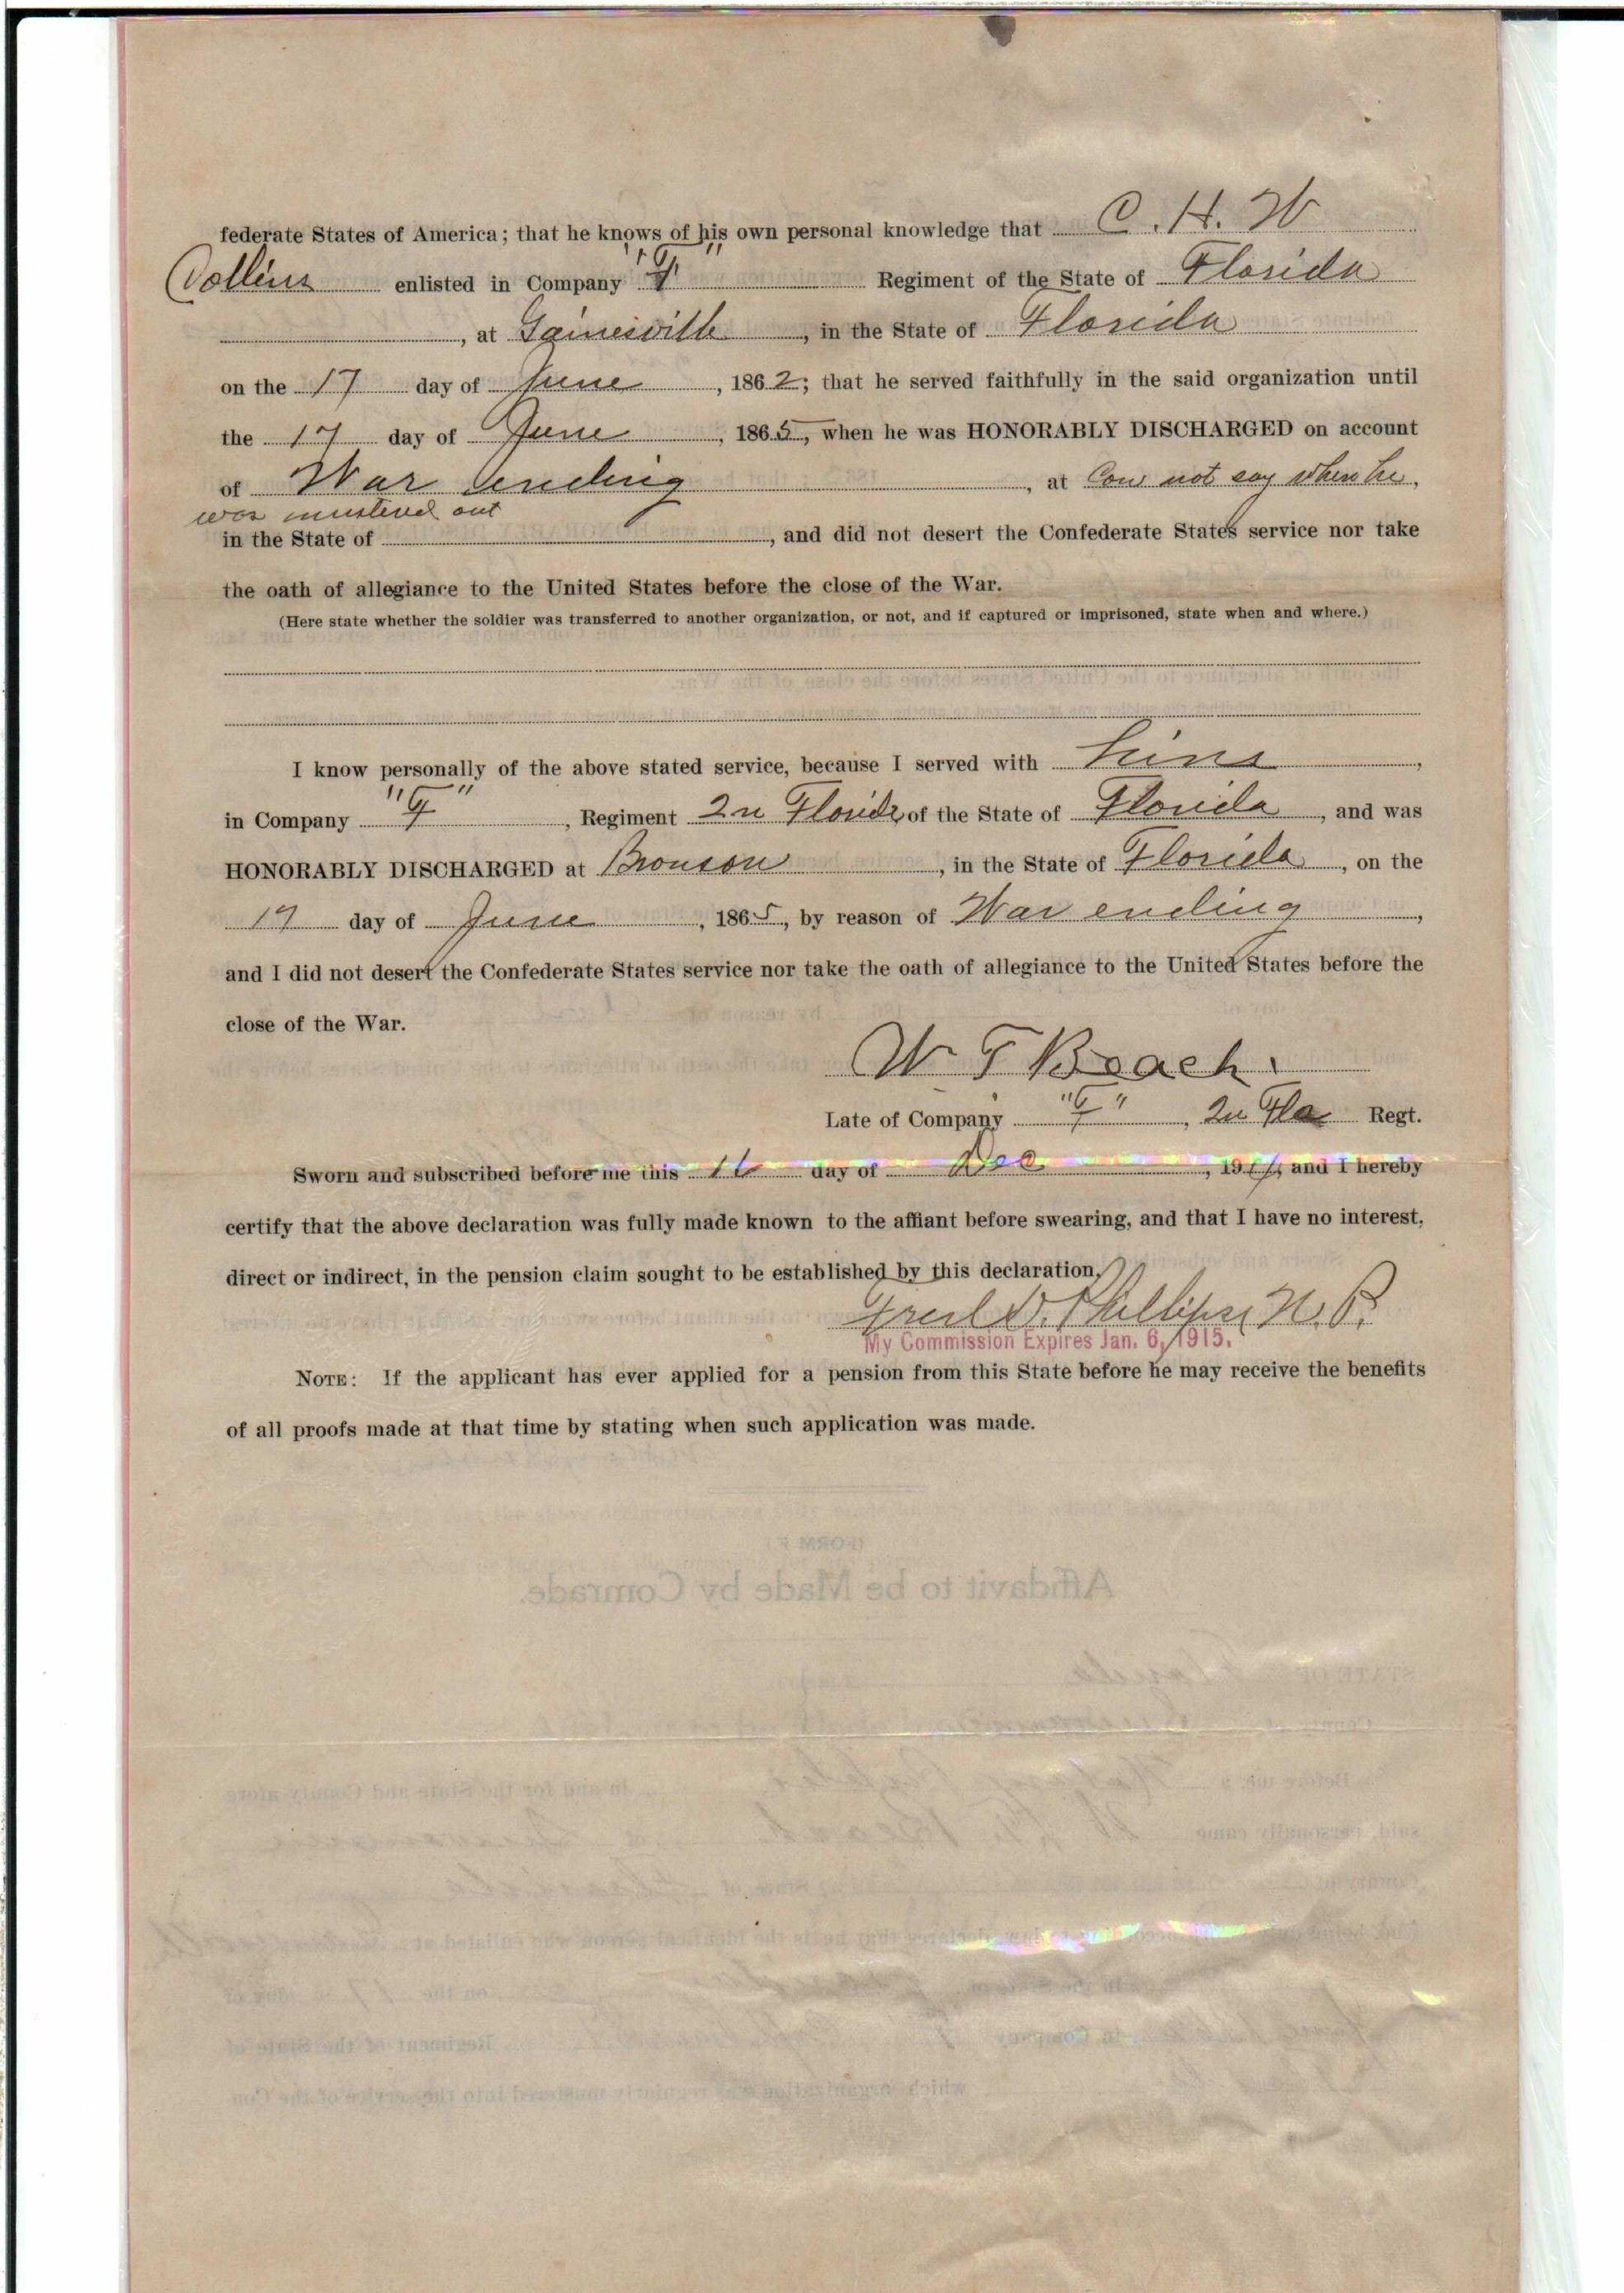 federate States of America; that he knows of his own personal knowledge that C. H. W
Collins enlisted in Company "F" Regiment of the State of Florida
, at Gainesville, in the State of Florida
on the 17 day of June, 1862; that he served faithfully in the said organization until
the 17 day of June, 1865, when he was HONORABLY DISCHARGED on account
of War ending, at Can not say when he,
was mustered out
in the State of , and did not desert the Confederate States service nor take
the oath of allegiance to the United States before the close of the War.
(Here state whether the soldier was transferred to another organization, or not, and if captured or imprisoned, state when and where.)
I know personally of the above stated service, because I served with him,
in Company "F", Regiment 2n Florida of the State of Florida, and was
HONORABLY DISCHARGED at Bronson, in the State of Florida, on the
17 day of June, 1865, by reason of War ending,
and I did not desert the Confederate States service nor take the oath of allegiance to the United States before the
close of the War.
W T Beach.
Late of Company "F", 2n Fla Regt.
Sworn and subscribed before me this 16 day of Dec, 191 and I hereby
certify that the above declaration was fully made known to the affiant before swearing, and that I have no interest,
direct or indirect, in the pension claim sought to be established by this declaration,
Fred D. Phillips, N. P.
My Commission Expires Jan. 6, 1915.
NOTE: If the applicant has ever applied for a pension from this State before he may receive the benefits
of all proofs made at that time by stating when such application was made.